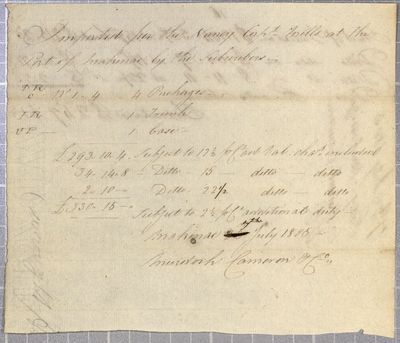 Imported per the Nancy Capt. Mills at the
Port of Makinac by the Subscribers
No 1 - 4 4 Packages
1 Trunk
1 Case
£293.10.4 Subject to 17½ p Ct ad Val. included
34.14.8 Ditto 15 ditto ditto
2.10 Ditto 22½ ditto ditto
£330.15 Subject to 2½ p Ct additional duty
Makinac July 1805
Murdoch Cameron & Co.